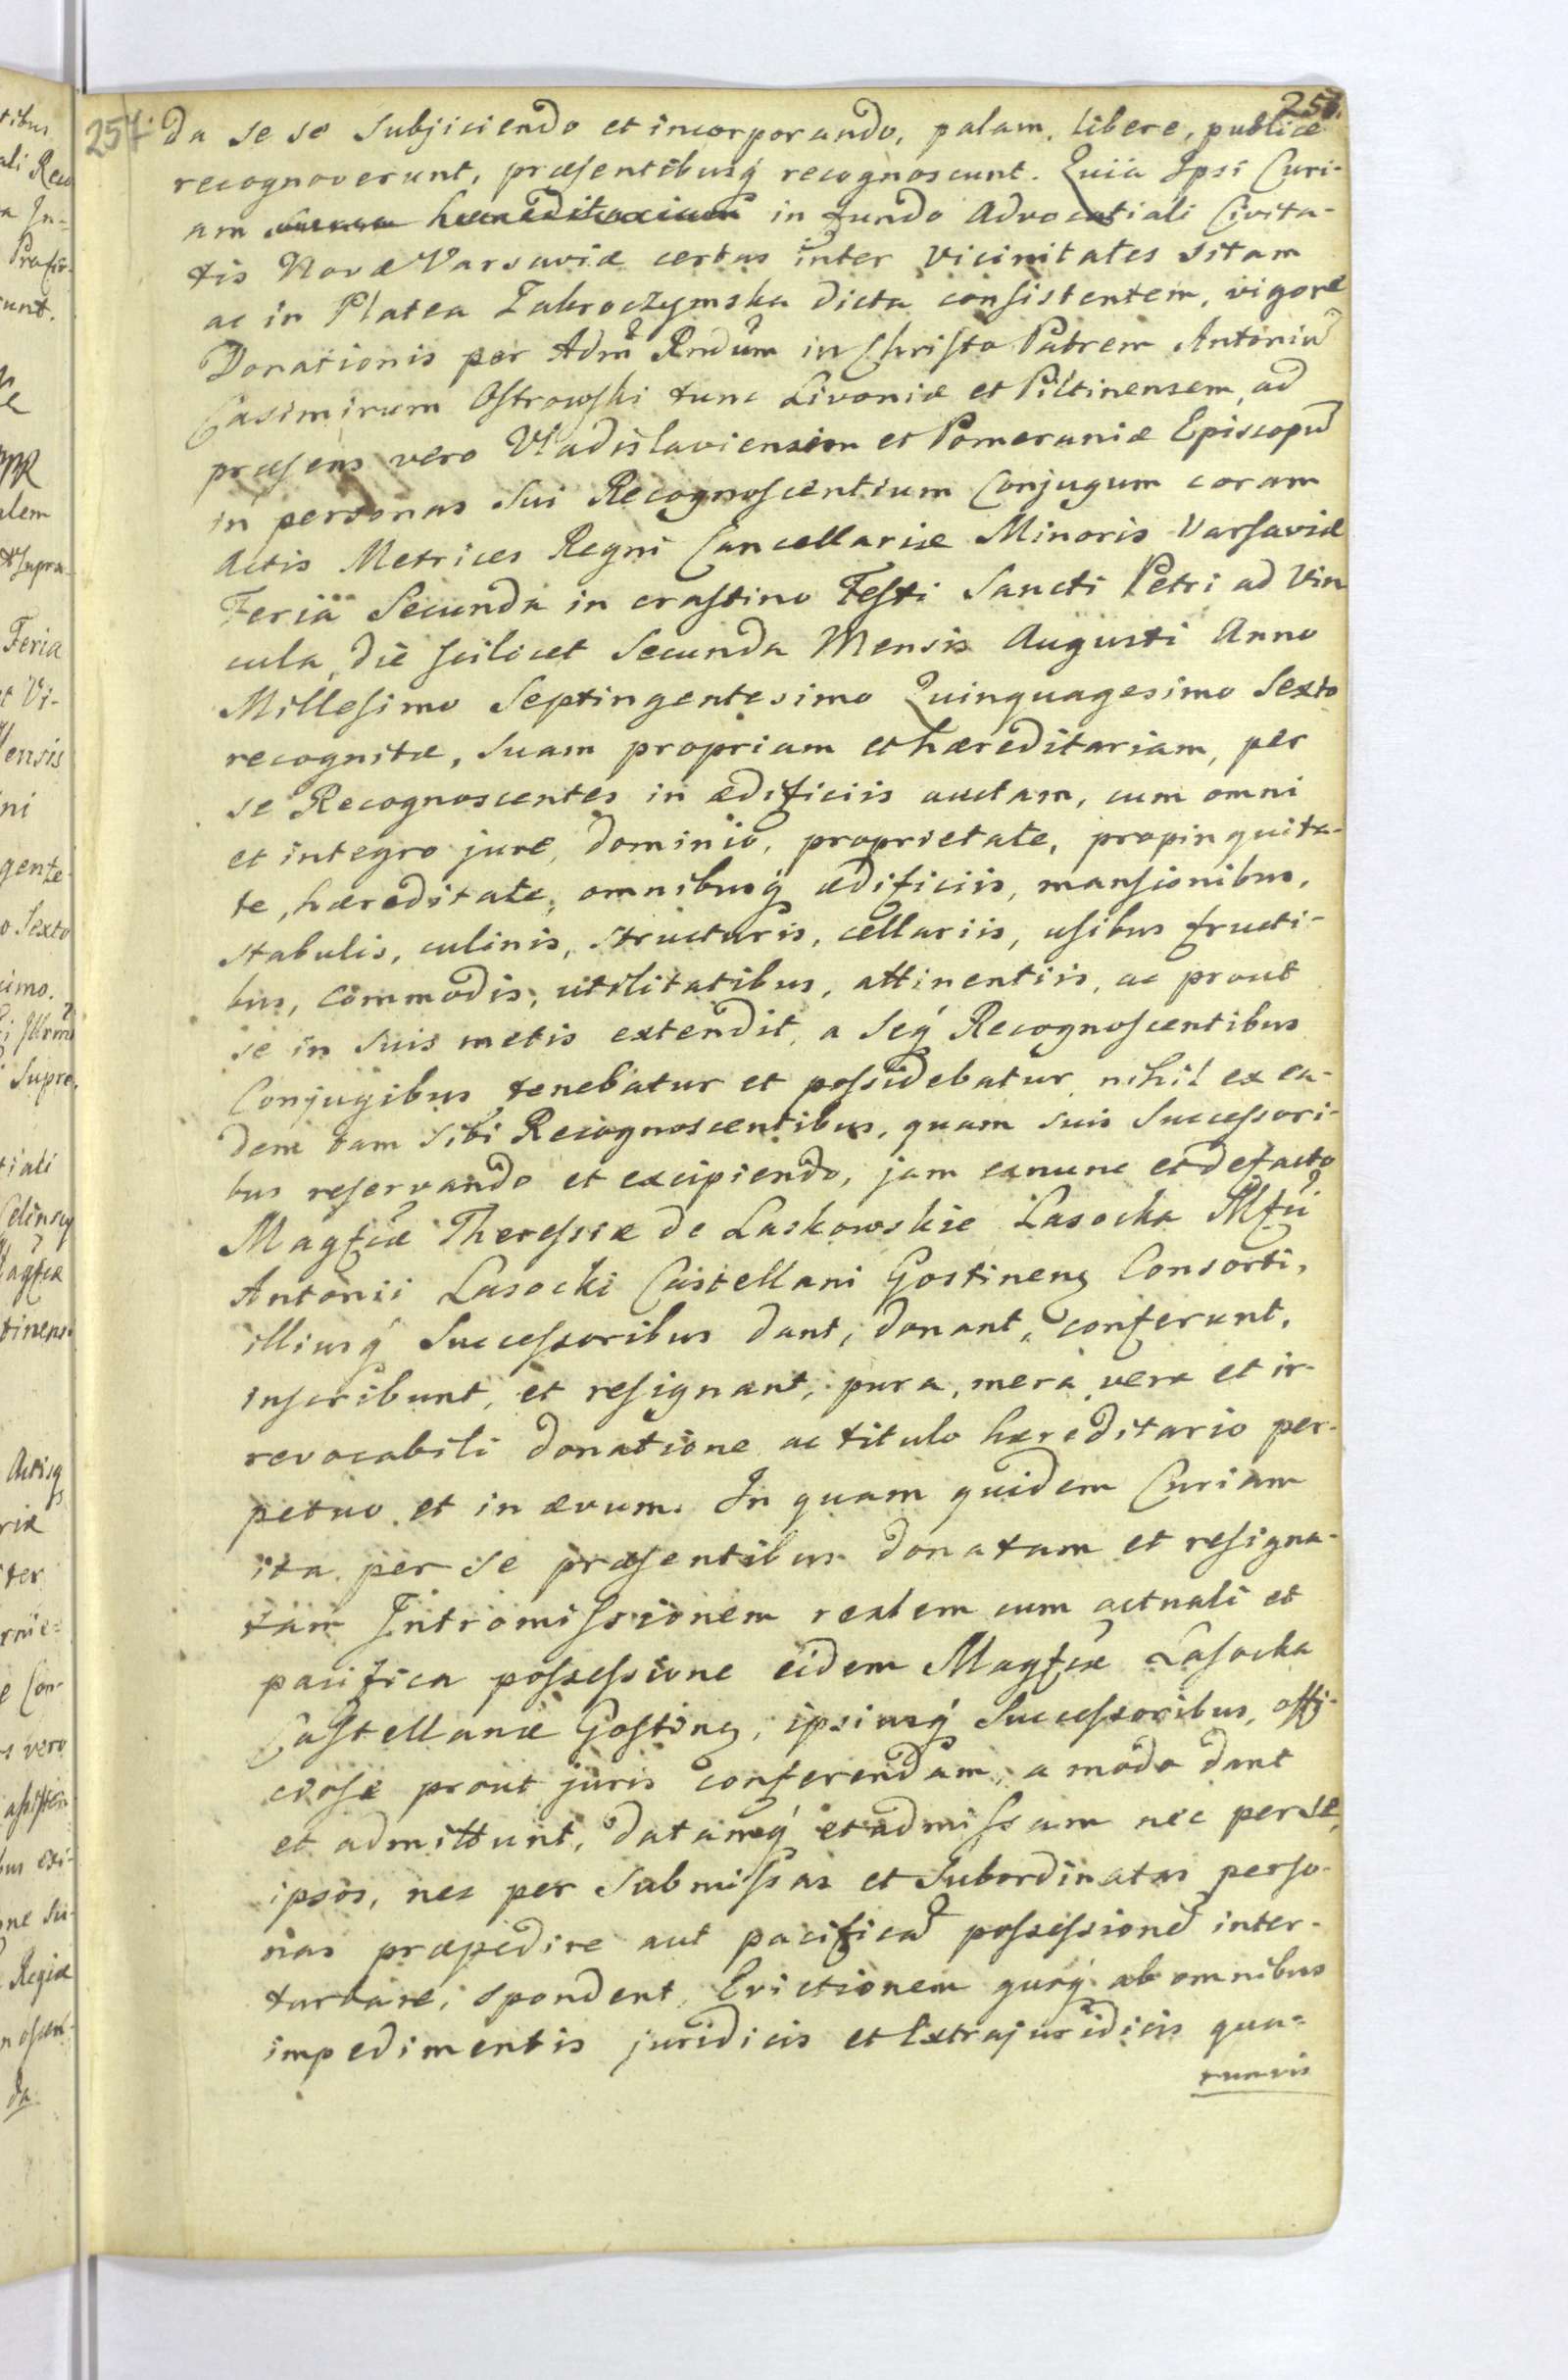 257. 256.
da se se subjiciendo et incorporando, palam, libere, publicæ
recognoverunt, præsentibusq́ recognoscunt. Quia Ipsi Curi-
am suam hæreditariam in fundo Advocatiali Civita-
tis Novæ Varsaviæ certas inter vicinitates sitam
ac in Platea Zakroczymska dicta consistentem, vigore
Donationis per Adm̃ Rndũm in Christo Patrem Antoniũ
Casimirum Ostrowski tunc Livoniæ et Piltinensem, ad
præsens vero Vladislaviensem et Pomeraniæ Episcopũ
in personas sui Recognoscentium Conjugum coram
Actis Metrices Regni Cancellariæ Minoris Varsaviæ
Feria Secunda in crastino Festi Sancti Petri ad Vin
cula, die scilicet Secunda Mensis Augusti Anno
Millesimo Septingentesimo Quinquagesimo Sexto
recognitæ, suam propriam et hæreditariam, per
se Recognoscentes in ædificiis auctam, cum omni
et integro jure, dominio, proprietate, propinquita-
te, hæreditate, omnibusq́ ædificiis, mansionibus,
stabulis, culinis, structuris, cellariis, usibus fructi-
bus, commodis, utilitatibus, attinentiis, ac prout
se in suis metis extendit, a seq́ Recognoscentibus
Conjugibus tenebatur et possidebatur nihil ex ea-
dem tam sibi Recognoscentibus, quam suis Successori-
bus reservando et excipiendo, jam exnunc et defacto
Magfcæ Theressiæ de Laskowskie Lasocka Mfci
Antonii Lasocki Castellani Gostinenȝ Consorti,
illiusq́ Successoribus dant, donant, conferunt,
inscribunt, et resignant, pura, mera, vera et ir-
revocabili donatione ac titulo hæreditario per-
petuo et in ævum. In quam quidem Curiam
ita per se præsentibus donatam et resigna-
tam Intromissionem realem cum actuali et
pacifica possessione eidem Magfcæ Lasocka
Castellanæ Gostinȝ, ipsiusq́ Successoribus, offi-
ciose prout juris conferendam, a modo dant
et admittunt, datamq́ et admissam nec per se
ipsos, nec per submissas et subordinatas perso-
nas præpedire aut pacificã possessionẽ inter-
turbare, spondent, Evictionem quoq́ ab omnibus
impedimentis juridicis et Extrajuridicis qua-
cunvis